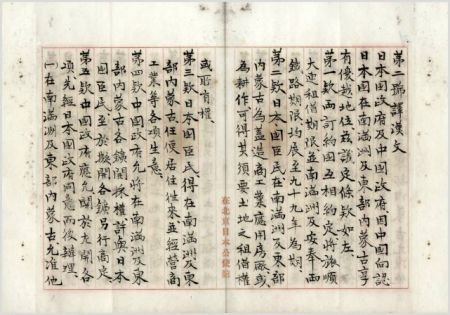 第二號譯漢文
日本國政府及中國政府因中國向認
日本國在南滿洲及東部內蒙古享
有優越地位茲議定條款如左
第一款兩訂約國互相約定將旅順
大連租借期限並南滿洲及安奉兩
鐵路期限均展至九十九年為期
第二款日本國臣民在南滿洲及東部
內蒙古為蓋造商工業應用房廠或
為耕作可得其須要土地之租借權
在北京日本公使館
或所有權。
第三款日本國臣民得在南滿洲及東
部內蒙古任便居住往來並經營商
工業等各項生意。
第四款中國政府允將在南滿洲及東
部內蒙古各鑛開採權許與日本
國臣民至於擬開各鑛另行商定
第五款中國政府應允關於左開各
項先經日本國政府同意而後辦理。
一在南滿洲及東部內蒙古允准他